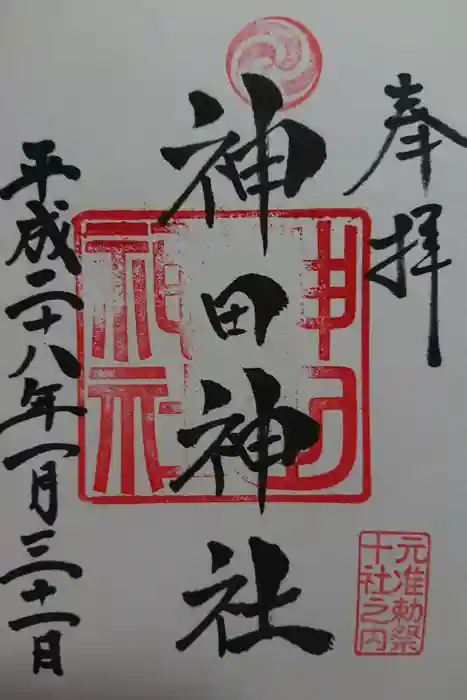 奉拝
神田神社
神田神社
元准勅祭
十社之内
平成二十八年一月三十一日